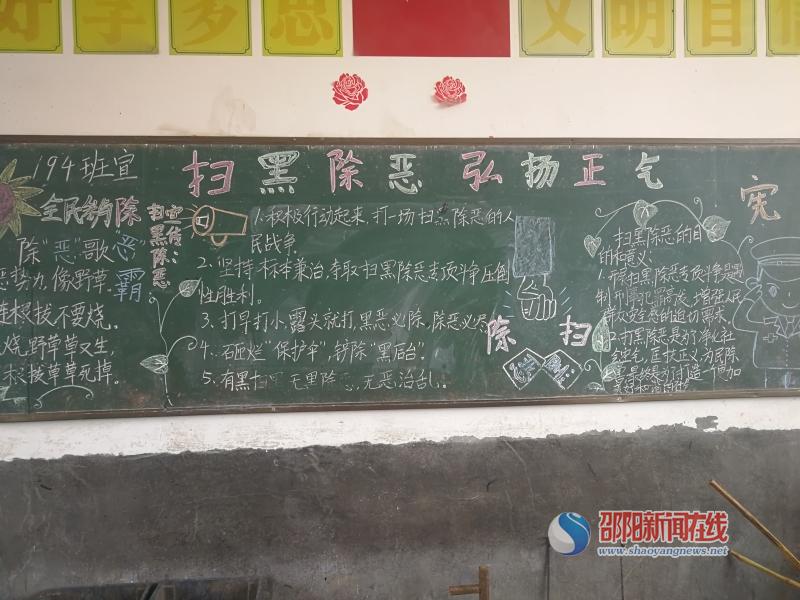 好学多思
文明自信
194班宣
扫黑除恶 弘扬正气
宪
全民参与除
除“恶”歌“恶”
霸
恶势力,像野草,
连根拔不要烧。
火烧野草草又生,
根拔草草死掉。
宣传:
扫黑除恶
1.积极行动起来,打一场扫黑除恶的人
民战争。
2.坚持标本兼治,夺取扫黑除恶专项斗争压倒
性胜利。
3.打早打小,露头就打,黑恶必除,除恶必尽
4.砸烂“保护伞”,铲除“黑后台”。
5.有黑扫黑,无黑除恶,无恶治乱。
除 扫
扫黑除恶的目
的和意义:
1.开展扫黑除恶专项斗争是遏
邵阳新闻在线
www.shaoyangnews.net